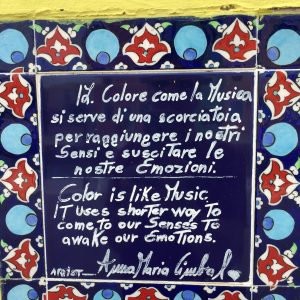 17. Colore come la Musica
si serve di una scorciatoia
per raggiungere i nostri
Sensi e suscitare le
nostre Emozioni.
Color is like Music,
IT Uses shorter way To
come to our Senses To
awake our EmoTions.
ARTIST Anna Maria